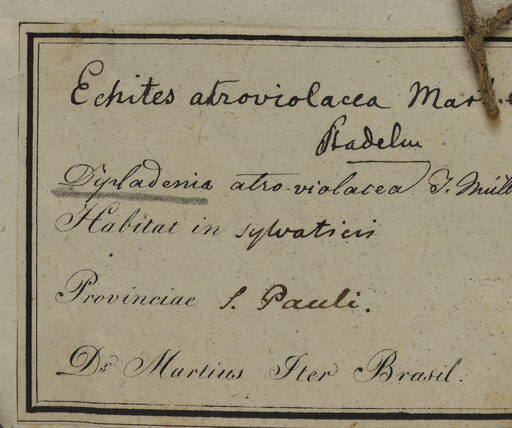 Echites atroviolacea Mar
Stadelm
Dipladenia atro-violacea J. Müll
Habitat in sylvaticis
Provinciae S. Pauli.
Dr Martius Iter Brasil.